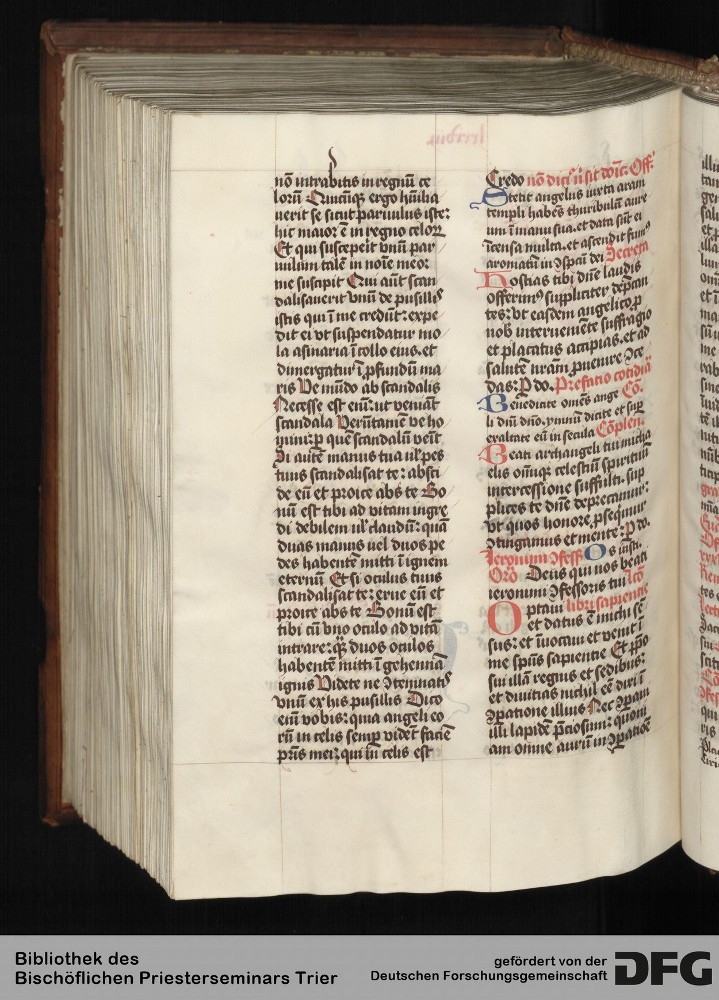 nō intrabitis in regnū ce
lorū Quicūq̄ ergo hūilia
uerit se sicut paruulus iste:
hic maior ē in regno celoꝝ
Et qui susceperit vnū par
uulum talē in noīe meo:
me suscipit Qui aūt scan
dalisauerit vnū de pusillꝭ
istis qui ī me credūt: expe
dit ei vt suspendatur mo
la asinaria ī collo eius. et
dimergatur ī ꝓfundū ma
ris Ve mūdo ab scandalis
Necesse est eīm: ut veniāt
scandala Verūtamē ve ho
mini: ꝑ quē scandalū venit
Si autē manus tua uł pes
tuus scandalisat te: absci
de eū et proice abs te Bo
nū est tibi ad vitam ingre
di debilem uł claudū: quā
duas manus uel duos pe
des habentē mitti ī ignem
eternū Et si oculus tuus
scandalisat te: erue eū et
proice abs te Bonū est
tibi cū vno oculo ad vitā
intrare: q̄ꝫ duos oculos
habentē mitti ī gehennā
ignis Videte ne ↄtemnatꝭ
vnū ex his pusillis Dico
eīm vobis: quia angeli eo
rū in celis semꝑ vidēt faciē
pr̄is mei: qui in celis est
Credo nō dicit᷑ n̄ sit dōic̄. Off̄
Stetit angelus iuxta aram
templi habēs thuribulū aure
um ī manu sua. et data sūt ei
īcensa multa. et ascendit fumꝰ
aromatū in ↄspcū dei Secreta
Hostias tibi dn̄e laudis
offerimꝰ suppliciter dep̄can
tes: vt easdem angelico ꝓ
nob̄ interueniēte suffragio
et placatus accipias. et ad
salutē nr̄am ꝓuenire ↄce
das: P̱ do. Prefatio cotidiā
Benedicite om̄es ange Cō.
li dn̄i dn̄o. ymnū dicite et suꝑ
exaltate eū in secula Cōplen̄.
Beati archangeli tui micha
elis om̄iūq̄ celestiū spirituū
intercessione suffulti. sup
plices te dn̄e deprecamur:
vt quos honore ꝓsequimur
ↄtingamus et mente: P̱ do.
Jeronimi ↄfess̄ Os iusti.
Orō Deus qui nos beati
ieronimi ↄfessoris tui lcō
Optaui libri sapientie
et datus ē michi sē
sus: et īuocaui et venit ī
me spūs sapientie Et p̄po
sui illā regnis et sedibus:
et diuitias nichil eē dixi ī
ↄꝑatione illius Nec ↄꝑaui
illi lapidē p̄ciosum: quoni
am omne aurū in ↄꝑatiōe
Bibliothek des
Bischöflichen Priesterseminars Trier
gefördert von der
Deutschen Forschungsgemeinschaft
DFG